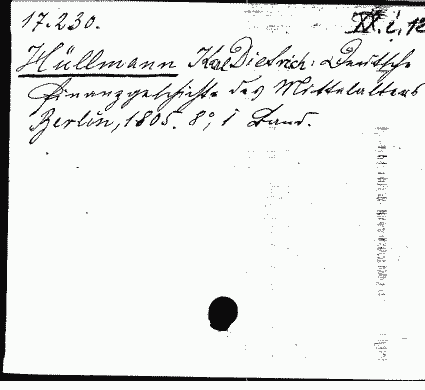 17.230. XX. i. 12
Hüllmann Karl Dietrich: Deutsche
Finanzgeschichte des Mittelalters
Berlin, 1805. 8°, 1 Band.